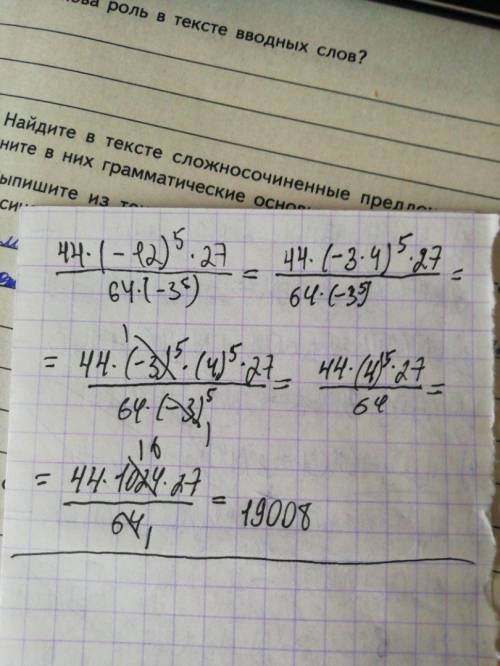 ова роль в тексте вводных слов?
Найдите в тексте сложносочиненные предлож
ните в них грамматические основы
ыпишите из те
44·(-12)^5·27 / 64·(-3^5) = 44·(-3·4)^5·27 / 64·(-3^5) =
= 44·(-3)^5·(4)^5·27 / 64·(-3)^5 = 44·(4)^5·27 / 64 =
= 44·1024·27 / 64 = 19008